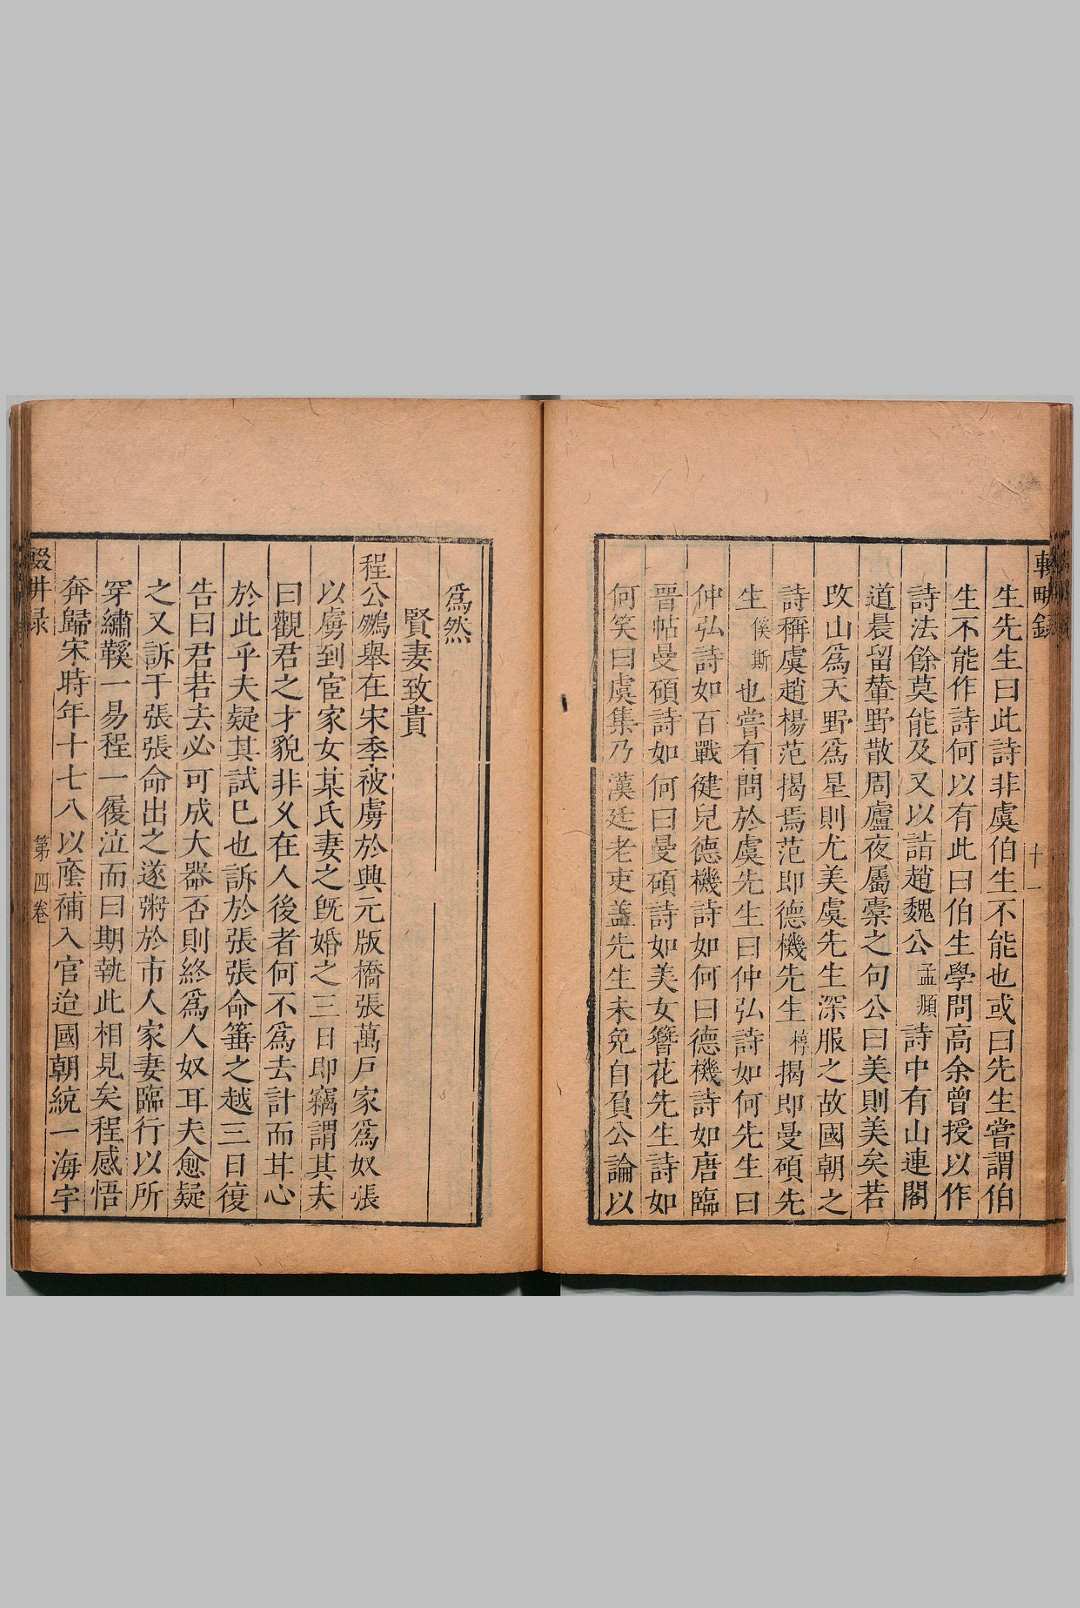 輟畊錄
十一
生先生曰此詩非虞伯生不能也或曰先生嘗謂伯
生不能作詩何以有此曰伯生學問高余曾授以作
詩法餘莫能及又以詣趙魏公孟頫詩中有山連閣
道晨留輦野散周廬夜屬櫜之句公曰美則美矣若
攺山爲天野爲星則尤美虞先生深服之故國朝之
詩稱虞趙楊范揭焉范即德機先生梈揭即曼碩先
生傒斯也嘗有問於虞先生曰仲弘詩如何先生曰
仲弘詩如百戰健兒德機詩如何曰德機詩如唐臨
晉帖曼碩詩如何曰曼碩詩如美女簪花先生詩如
何笑曰虞集乃漢廷老吏葢先生未免自負公論以
爲然
賢妻致貴
程公鵬舉在宋季被虜於興元版橋張萬戶家爲奴張
以虜到宦家女某氏妻之旣婚之三日即竊謂其夫
曰觀君之才貌非久在人後者何不爲去計而甘心
於此乎夫疑其試已也訴於張張命箠之越三日復
告曰君若去必可成大器否則終爲人奴耳夫愈疑
之又訴于張張命出之遂粥於市人家妻臨行以所
穿繡鞵一易程一履泣而曰期執此相見矣程感悟
奔歸宋時年十七八以廕補入官迨國朝統一海宇
輟畊录
第四卷